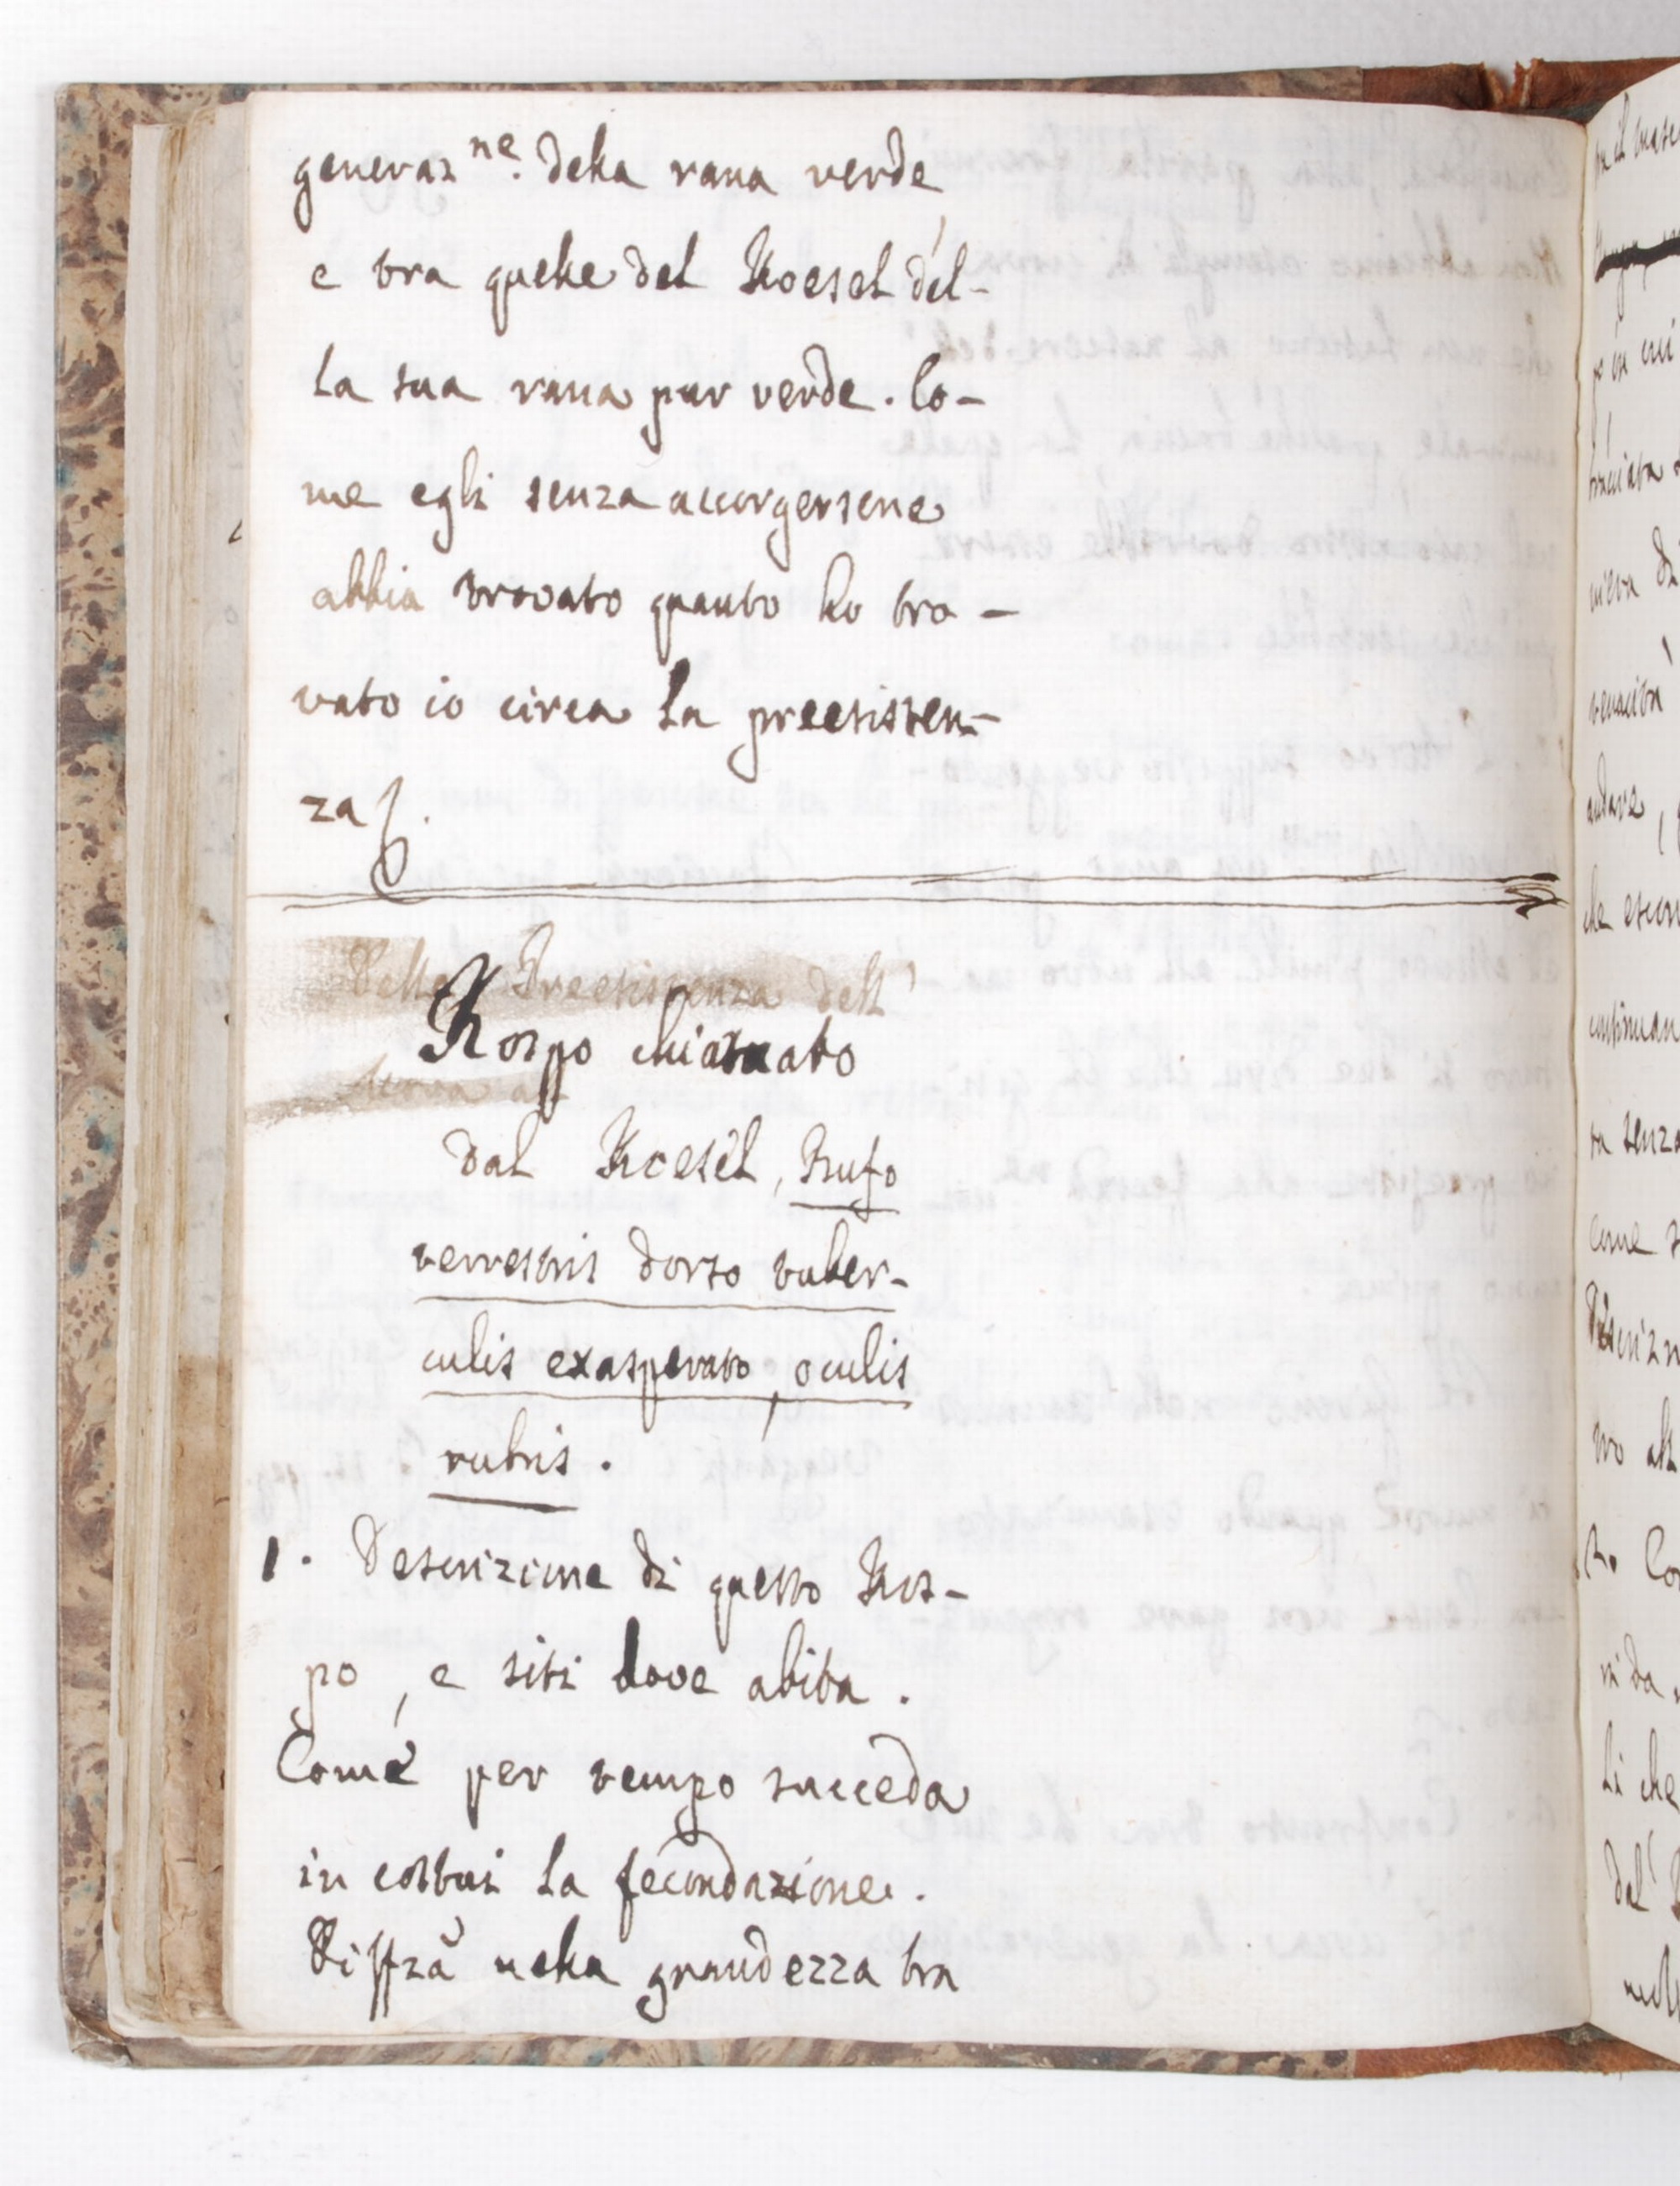 generaz.ne della rana verde
e tra quelle del Roesel del-
la sua rana pur verde. Co-
me egli senza accorgersene
abbia trovato quanto ho tro-
vato io circa la preesisten-
za.
Della Preesistenza dell'
Rospo chiamato
dal Roesel, Bufo
terrestris dorso tuber-
culis exasperato, oculis
rubris.
1. Descrizione di questo Ros-
po, e siti dove abita.
Come per tempo succeda
in costui la fecondazione.
Diffza nella grandezza tra